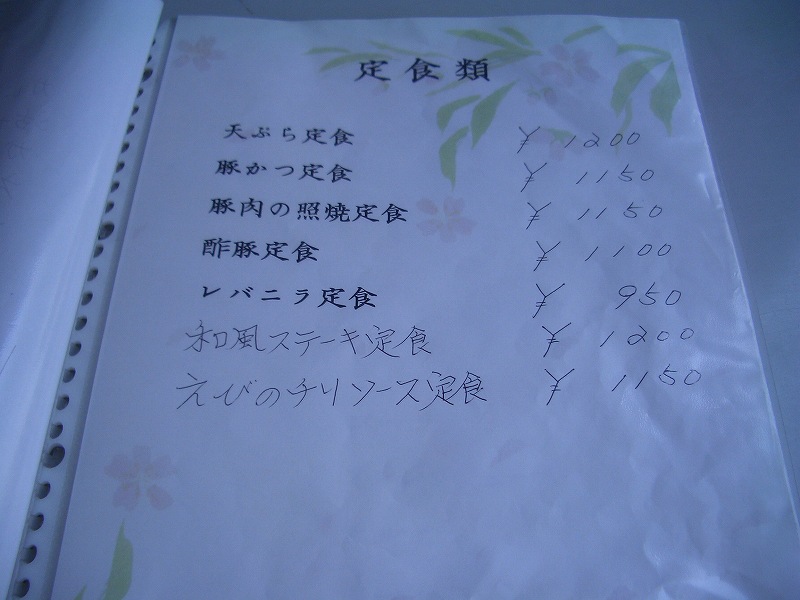 定食類
天ぷら定食 ¥ 1200
豚かつ定食 ¥ 1150
豚肉の照焼定食 ¥ 1150
酢豚定食 ¥ 1100
レバニラ定食 ¥ 950
和風ステーキ定食 ¥ 1200
えびのチリソース定食 ¥ 1150